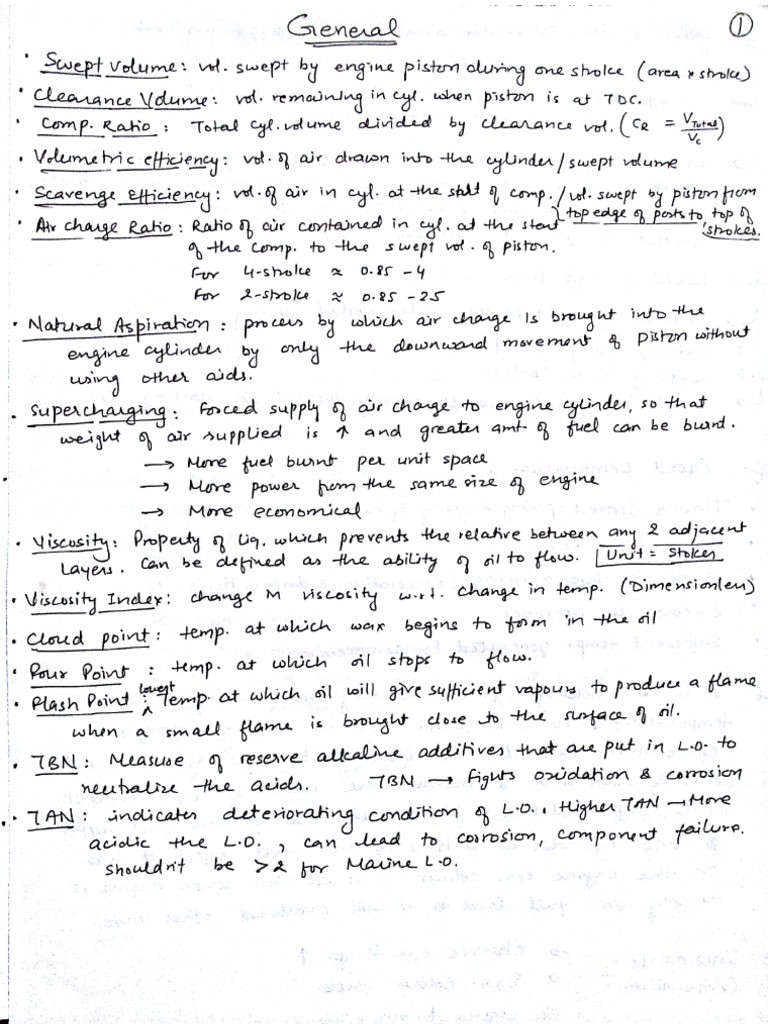 General
①
• Swept Volume: vol. swept by engine piston during one stroke (area × stroke)
• Clearance Volume: vol. remaining in cyl. when piston is at TDC.
• Comp. Ratio : Total cyl. volume divided by clearance vol. (CR = VTotal/Vc)
• Volumetric efficiency: vol. of air drawn into the cylinder / swept volume
• Scavenge Efficiency: vol. of air in cyl. at the start of comp. / vol. swept by piston from
top edge of ports to top of
strokes.
• Air charge Ratio : Ratio of air contained in cyl. at the start
of the comp. to the swept vol. of piston.
For 4-stroke ≈ 0.85 - 4
For 2-stroke ≈ 0.85 - 25
• Natural Aspiration : process by which air charge is brought into the
engine cylinder by only the downward movement of piston without
using other aids.
• Supercharging : Forced supply of air charge to engine cylinder, so that
weight of air supplied is ↑ and greater amt of fuel can be burnt.
→ More fuel burnt per unit space
→ More power from the same size of engine
→ More economical
• Viscosity: Property of Liq. which prevents the relative between any 2 adjacent
Layers. Can be defined as the ability of oil to flow. Unit = Stokes
• Viscosity Index: change in viscosity w.r.t. change in temp. (Dimensionless)
• Cloud point : temp. at which wax begins to form in the oil
• Pour Point : temp. at which oil stops to flow.
• Flash Point : lowest Temp at which oil will give sufficient vapours to produce a flame
when a small flame is brought close to the surface of oil.
• TBN : Measure of reserve alkaline additives that are put in L.O. to
neutralize the acids. TBN → Fights oxidation & corrosion
• TAN : indicates deteriorating condition of L.O. Higher TAN → More
acidic the L.O., can lead to corrosion, component failure.
shouldn't be > 2 for Marine L.O.